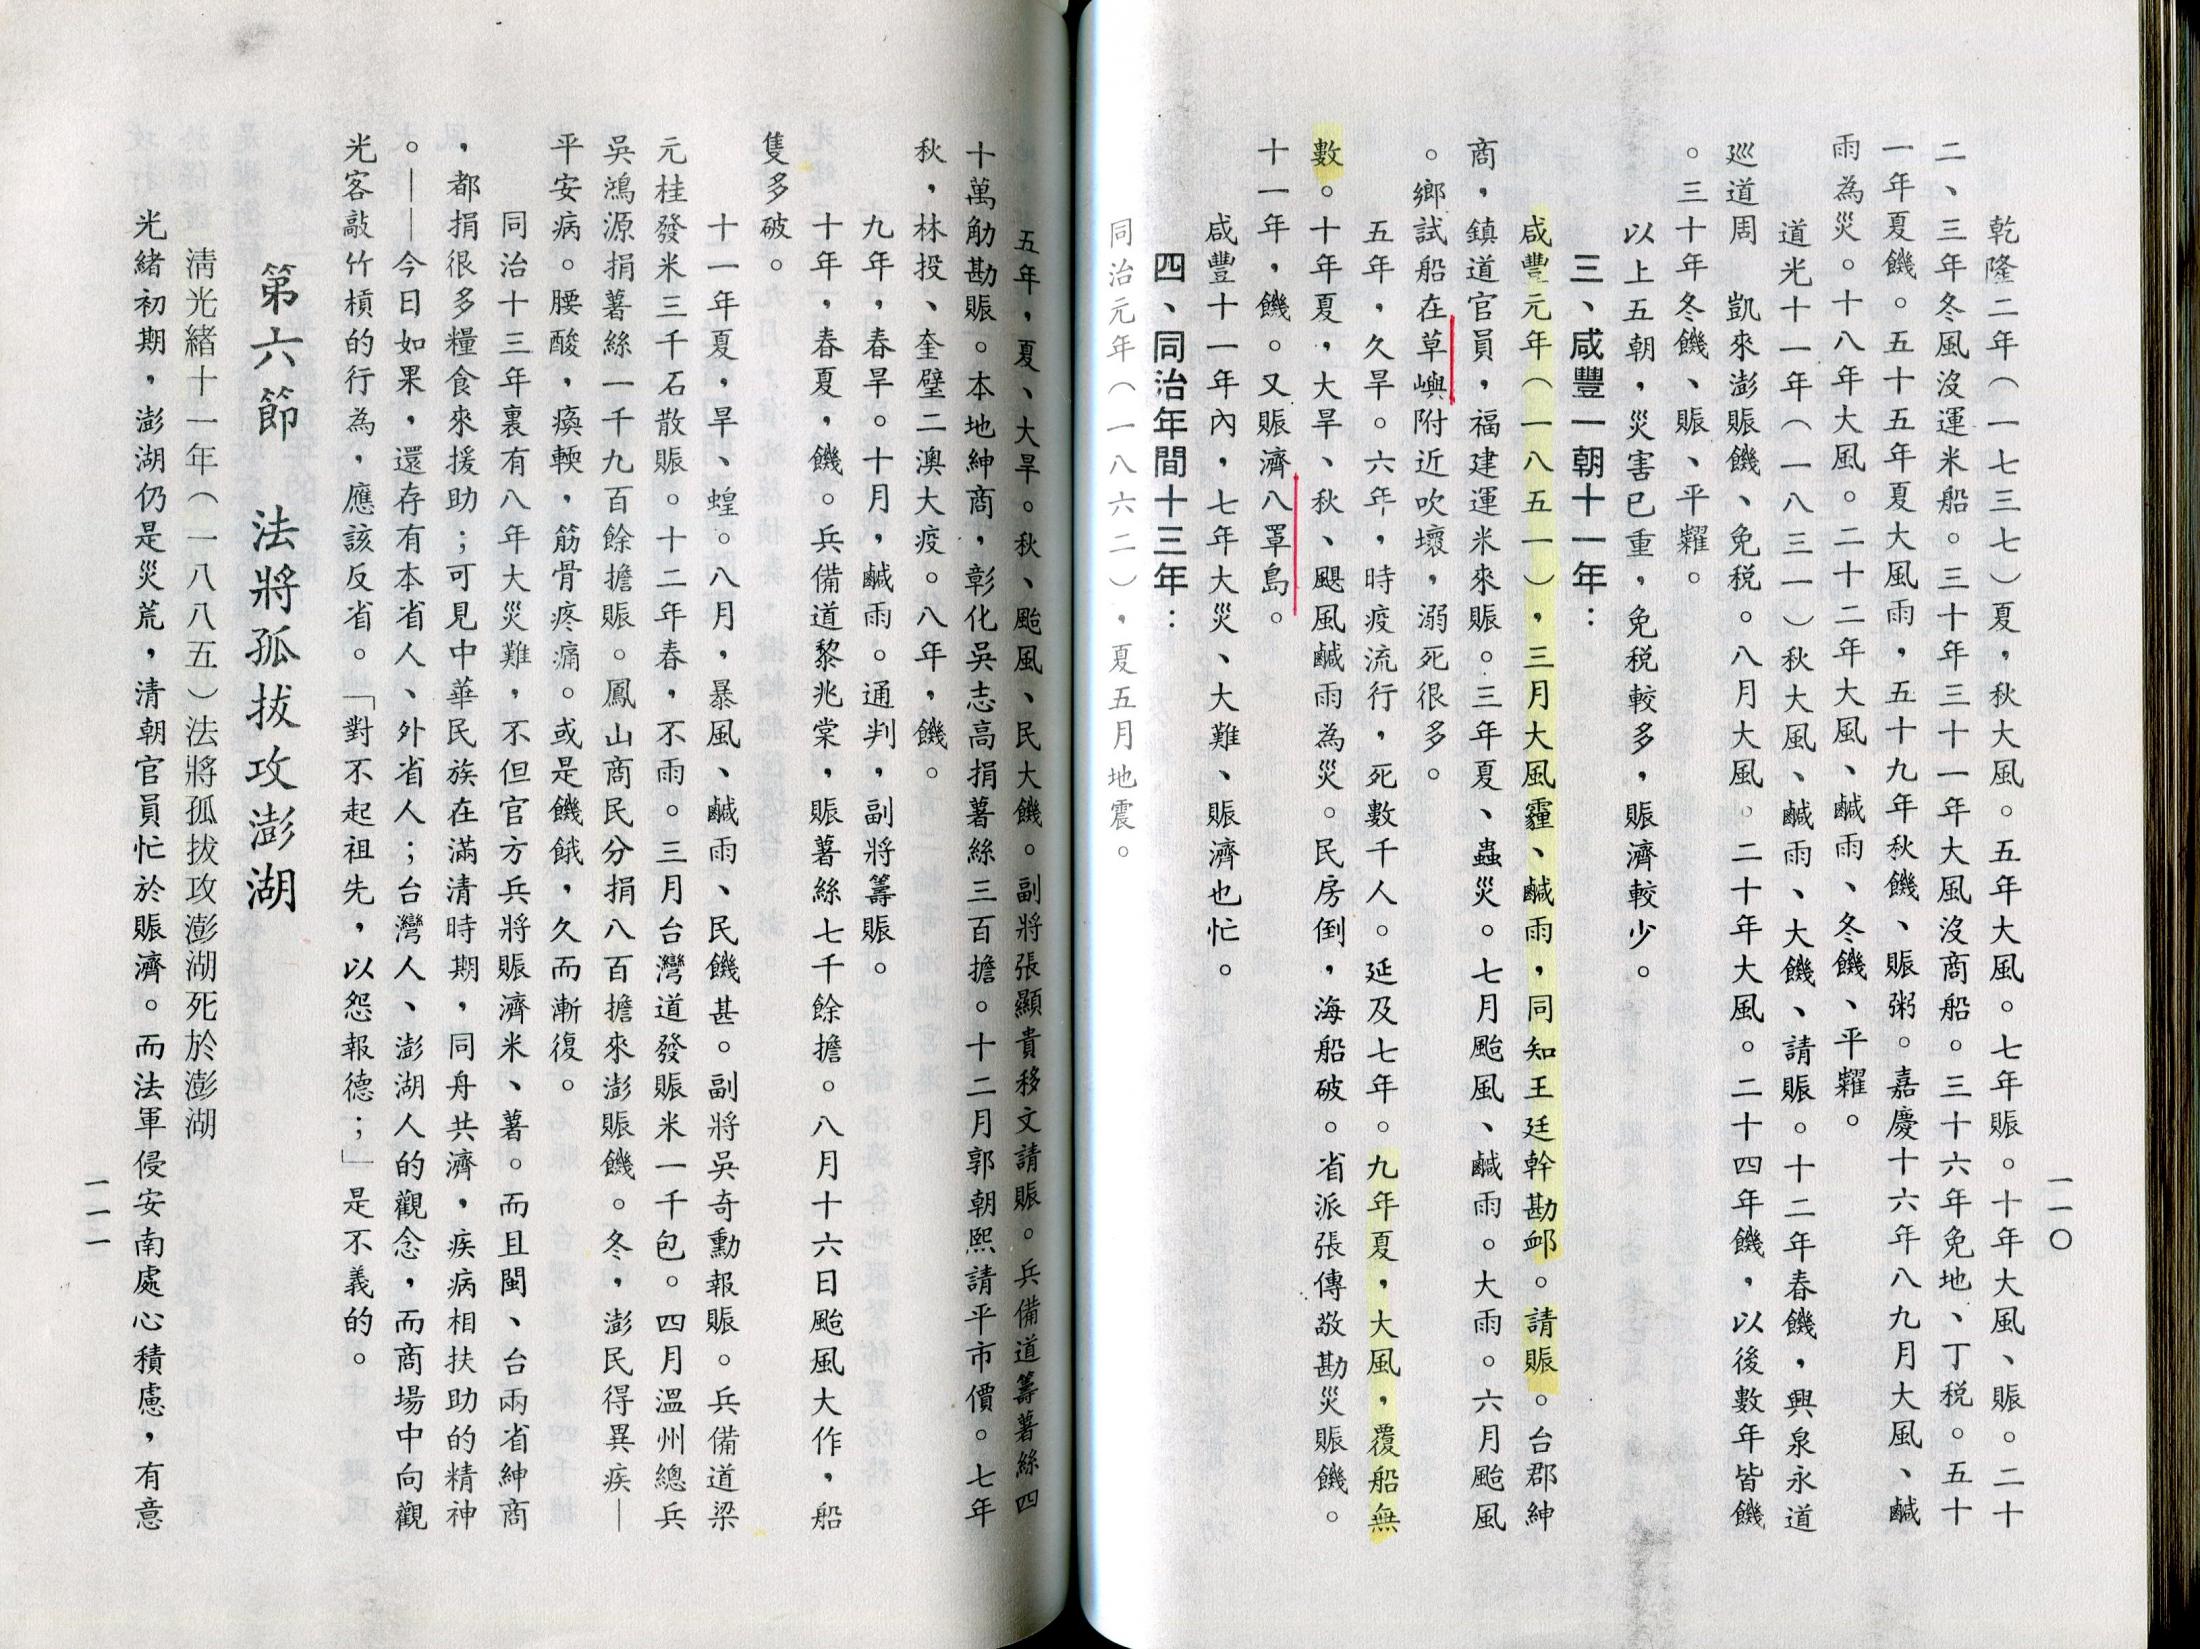 乾隆二年（一七三七）夏，秋大風。五年大風。七年賑。十年大風、賑。二十
二、三年冬風沒運米船。三十年三十一年大風沒商船。三十六年免地、丁税。五十
一年夏饑。五十五年夏大風雨，五十九年秋饑、賑粥。嘉慶十六年八九月大風、鹹
雨為災。十八年大風。二十二年大風、鹹雨、冬饑、平糶。
道光十一年（一八三一）秋大風、鹹雨、大饑、請賑。十二年春饑，興泉永道
巡道周　凱來澎賑饑、免税。八月大風。二十年大風。二十四年饑，以後數年皆饑
。三十年冬饑、賑、平糶。
以上五朝，災害已重，免税較多，賑濟較少。
三、咸豐一朝十一年：
咸豐元年（一八五一），三月大風霾、鹹雨，同知王廷幹勘卹。請賑。台郡紳
商，鎮道官員，福建運米來賑。三年夏、蟲災。七月颱風、鹹雨。大雨。六月颱風
。鄉試船在草嶼附近吹壞，溺死很多。
五年，久旱。六年，時疫流行，死數千人。延及七年。九年夏，大風，覆船無
數。十年夏，大旱、秋、颶風鹹雨為災。民房倒，海船破。省派張傳敬勘災賑饑。
十一年，饑。又賑濟八罩島。
咸豐十一年內，七年大災、大難、賑濟也忙。
四、同治年間十三年：
同治元年（一八六二），夏五月地震。
一一〇
五年，夏、大旱。秋、颱風、民大饑。副將張顯貴移文請賑。兵備道籌薯絲四
十萬觔勘賑。本地紳商，彰化吳志高捐薯絲三百擔。十二月郭朝熙請平市價。七年
秋，林投、奎壁二澳大疫。八年，饑。
九年，春旱。十月，鹹雨。通判，副將籌賑。
十年，春夏，饑。兵備道黎兆棠，賑薯絲七千餘擔。八月十六日颱風大作，船
隻多破。
十一年夏，旱、蝗。八月，暴風、鹹雨、民饑甚。副將吳奇勳報賑。兵備道梁
元桂發米三千石散賑。十二年春，不雨。三月台灣道發賑米一千包。四月溫州總兵
吳鴻源捐薯絲一千九百餘擔賑。鳳山商民分捐八百擔來澎賑饑。冬，澎民得異疾—
平安病。腰酸，瘓輭，筋骨疼痛。或是饑餓，久而漸復。
同治十三年裏有八年大災難，不但官方兵將賑濟米、薯。而且閩、台兩省紳商
，都捐很多糧食來援助；可見中華民族在滿清時期，同舟共濟，疾病相扶助的精神
。——今日如果，還存有本省人、外省人；台灣人、澎湖人的觀念，而商場中向觀
光客敲竹槓的行為，應該反省。「對不起祖先，以怨報德；」是不義的。
第六節　法將孤拔攻澎湖
清光緒十一年（一八八五）法將孤拔攻澎湖死於澎湖
光緒初期，澎湖仍是災荒，清朝官員忙於賑濟。而法軍侵安南處心積慮，有意
一一一